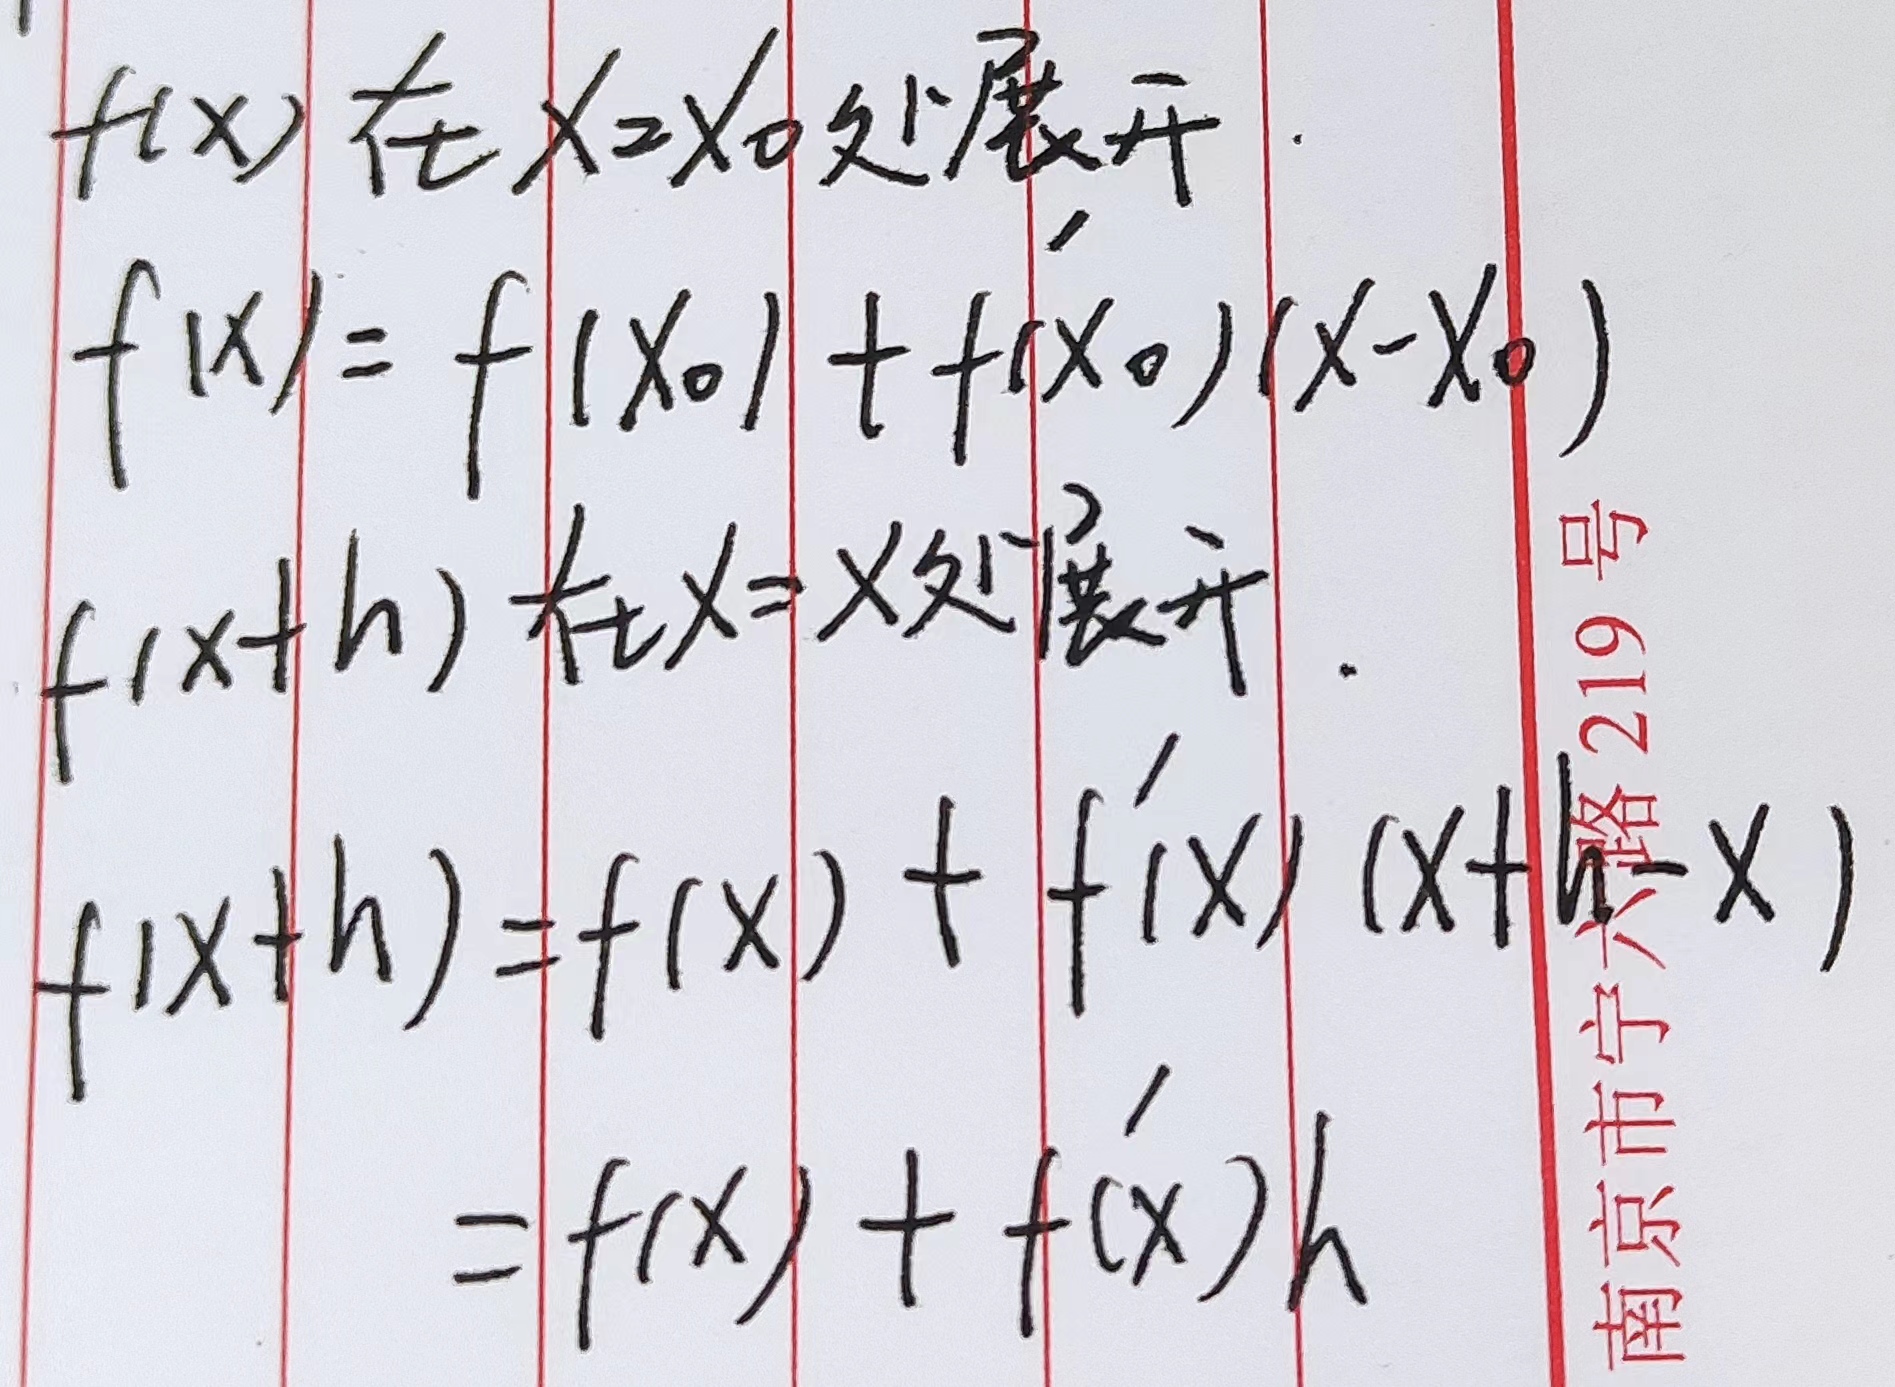 f(x) 在 x=x₀处展开.
f(x)= f(x₀) + f'(x₀)(x-x₀)
f(x+h) 在x=x处展开.
f(x+h)=f(x) + f'(x) (x+h-x)
=f(x) + f'(x)h
南京市宁六路 219 号